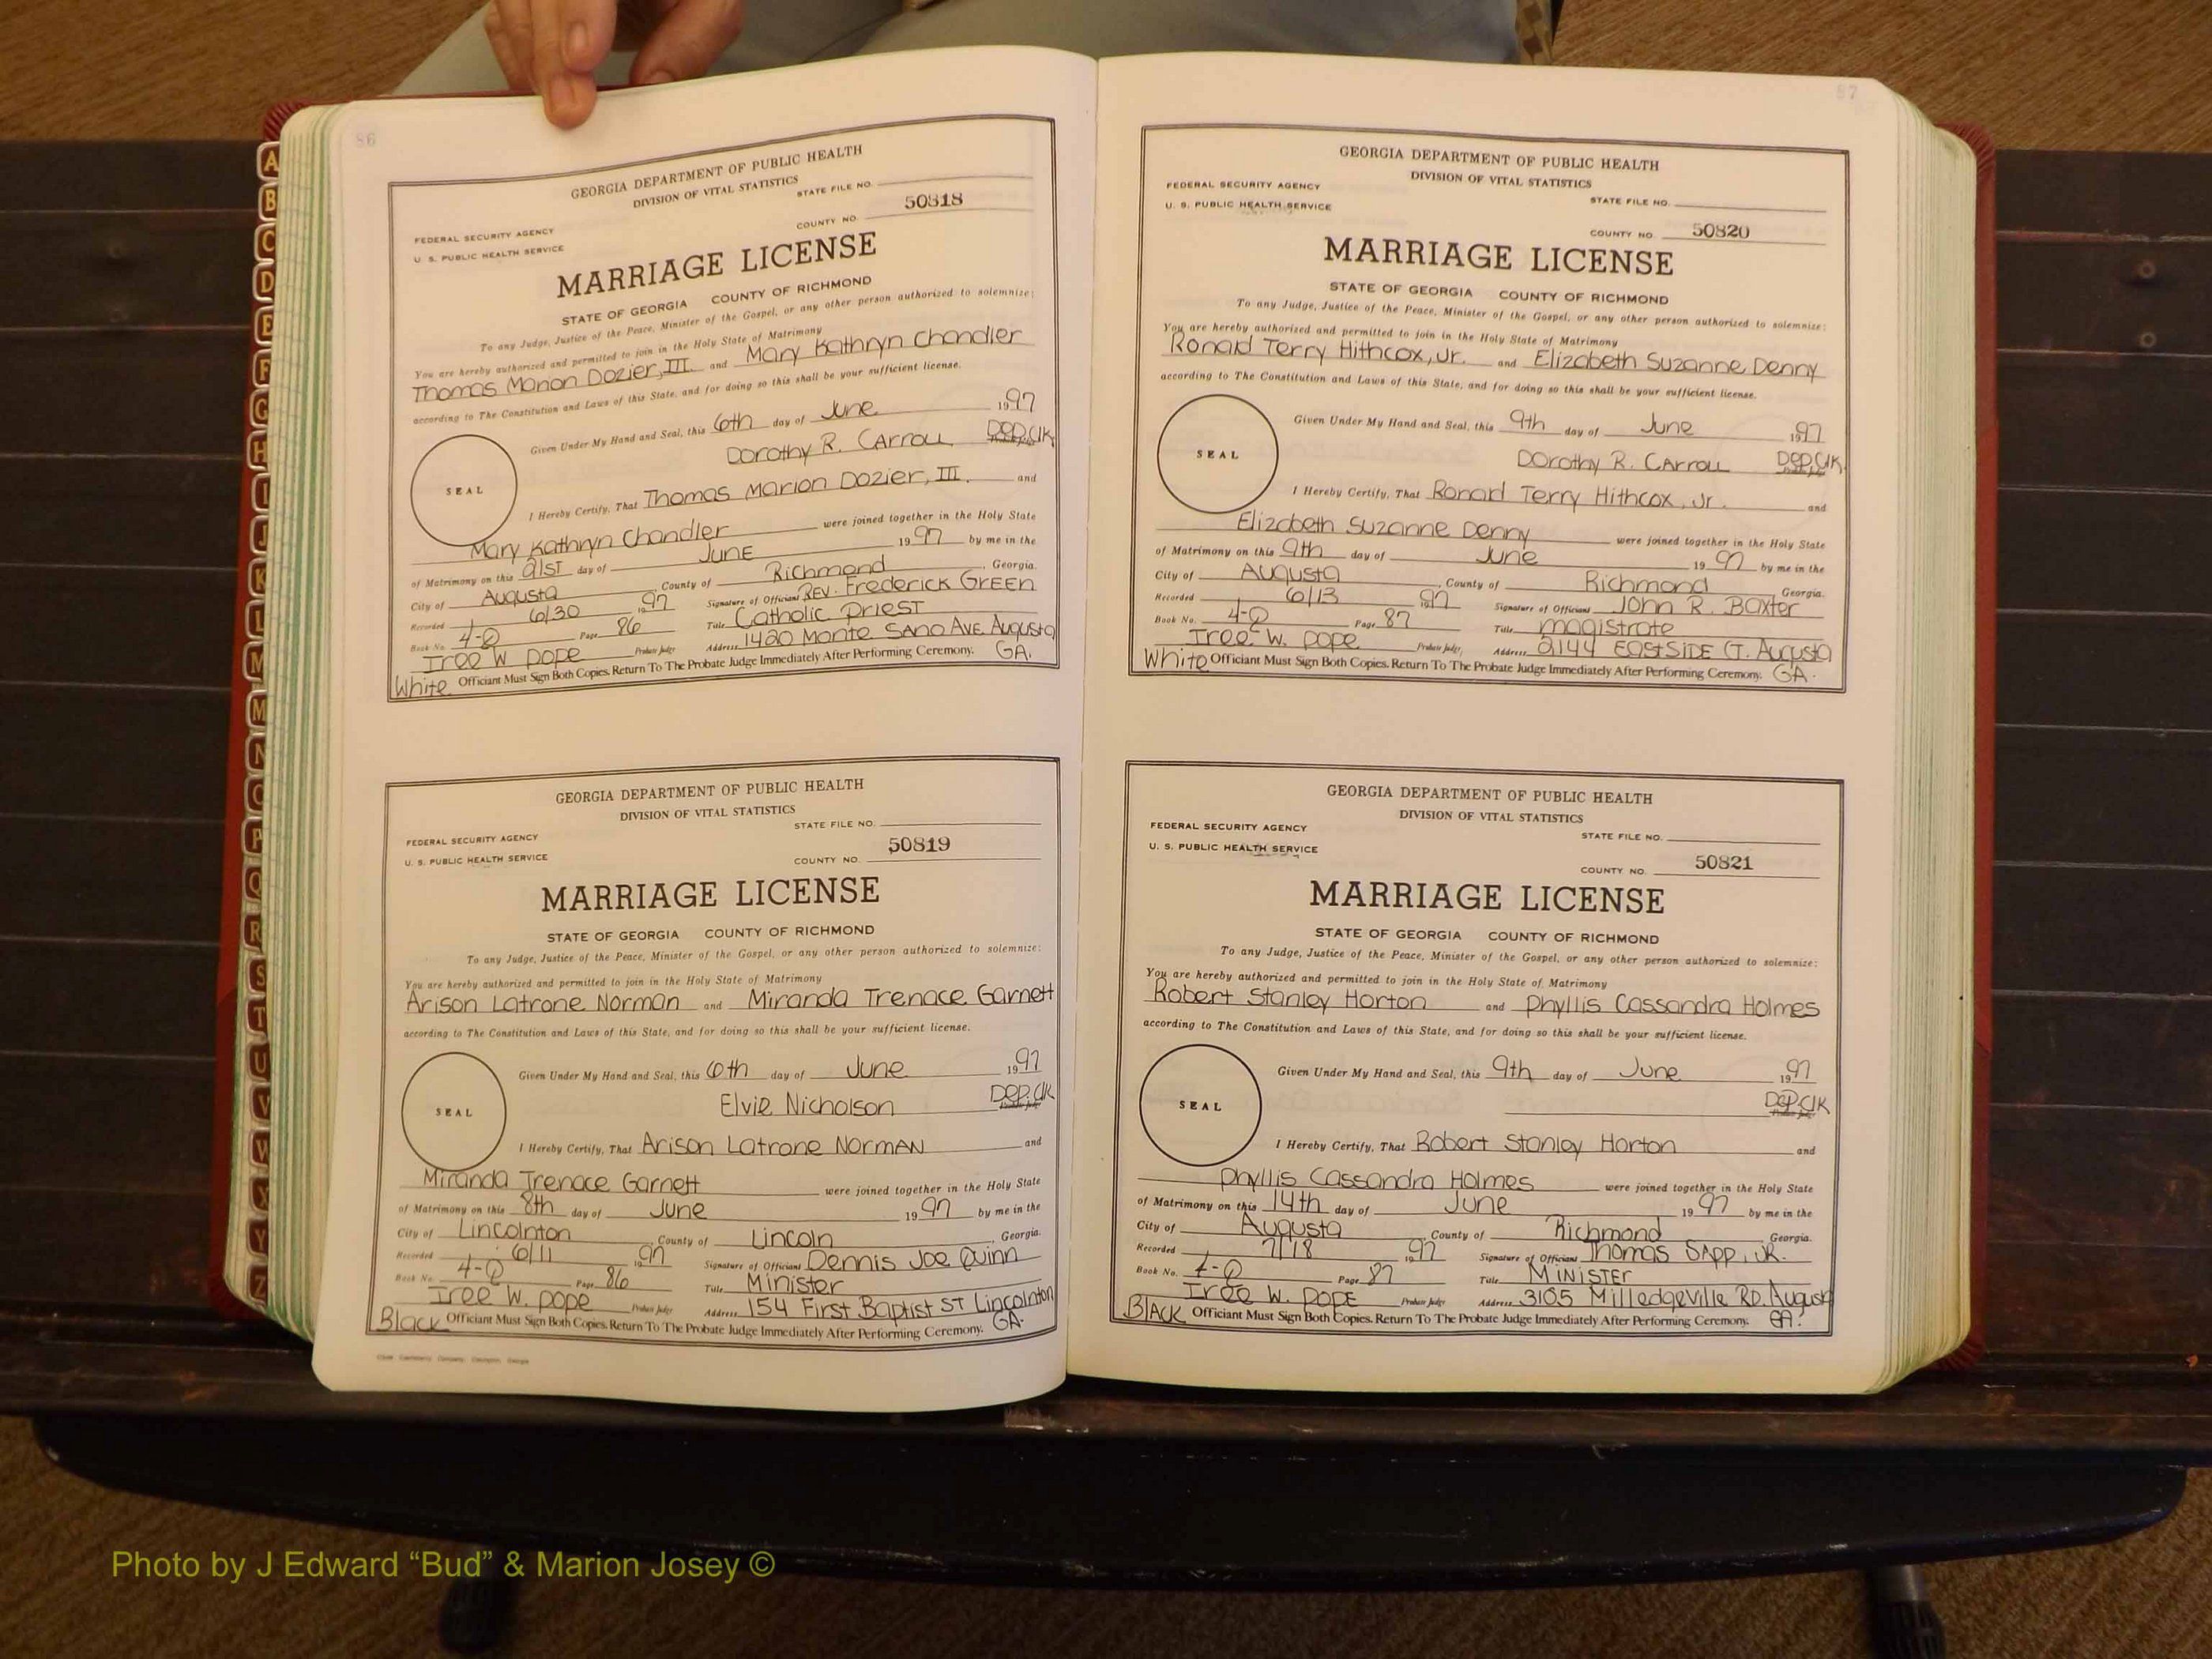 86
GEORGIA DEPARTMENT OF PUBLIC HEALTH
DIVISION OF VITAL STATISTICS
STATE FILE NO.
COUNTY NO. 50818
FEDERAL SECURITY AGENCY
U. S. PUBLIC HEALTH SERVICE
MARRIAGE LICENSE
STATE OF GEORGIA COUNTY OF RICHMOND
To any Judge, Justice of the Peace, Minister of the Gospel, or any other person authorized to solemnize:
You are hereby authorized and permitted to join in the Holy State of Matrimony
Thomas Marion Dozier, III. and Mary Kathryn Chandler
according to The Constitution and Laws of this State, and for doing so this shall be your sufficient license.
Given Under My Hand and Seal, this 6th day of June 1997
Dorothy R. Carroll Dep. Clk
SEAL
I Hereby Certify, That Thomas Marion Dozier, III. and
Mary Kathryn Chandler were joined together in the Holy State
of Matrimony on this 21st day of JUNE 1997 by me in the
City of Augusta, County of Richmond, Georgia.
Recorded 6/30 1997 Signature of Officiant REV. Frederick GREEN
Book No. 4-Q Page 86 Title Catholic Priest
Iree W. Pope Probate Judge Address 1420 Monte Sano Ave. Augusta
White Officiant Must Sign Both Copies. Return To The Probate Judge Immediately After Performing Ceremony. GA.
GEORGIA DEPARTMENT OF PUBLIC HEALTH
DIVISION OF VITAL STATISTICS
STATE FILE NO.
FEDERAL SECURITY AGENCY
U. S. PUBLIC HEALTH SERVICE
COUNTY NO. 50819
MARRIAGE LICENSE
STATE OF GEORGIA COUNTY OF RICHMOND
To any Judge, Justice of the Peace, Minister of the Gospel, or any other person authorized to solemnize:
You are hereby authorized and permitted to join in the Holy State of Matrimony
Arison Latrone Norman and Miranda Trenace Garnett
according to The Constitution and Laws of this State, and for doing so this shall be your sufficient license.
Given Under My Hand and Seal, this 6th day of June 1997
Elvie Nicholson Dep. Clk
SEAL
I Hereby Certify, That Arison Latrone Norman and
Miranda Trenace Garnett were joined together in the Holy State
of Matrimony on this 8th day of June 1997 by me in the
City of Lincolnton, County of Lincoln, Georgia.
Recorded 6/11 1997 Signature of Officiant Dennis Joe Quinn
Book No. 4-Q Page 86 Title Minister
Iree W. Pope Probate Judge Address 154 First Baptist ST Lincolnton
Black Officiant Must Sign Both Copies. Return To The Probate Judge Immediately After Performing Ceremony. GA.
87
GEORGIA DEPARTMENT OF PUBLIC HEALTH
DIVISION OF VITAL STATISTICS
FEDERAL SECURITY AGENCY
U. S. PUBLIC HEALTH SERVICE
STATE FILE NO.
COUNTY NO. 50820
MARRIAGE LICENSE
STATE OF GEORGIA COUNTY OF RICHMOND
To any Judge, Justice of the Peace, Minister of the Gospel, or any other person authorized to solemnize:
You are hereby authorized and permitted to join in the Holy State of Matrimony
Ronald Terry Hithcox, Jr. and Elizabeth Suzanne Denny
according to The Constitution and Laws of this State, and for doing so this shall be your sufficient license.
Given Under My Hand and Seal, this 9th day of June 1997
Dorothy R. Carroll Dep. Clk
SEAL
I Hereby Certify, That Ronald Terry Hithcox, Jr. and
Elizabeth Suzanne Denny were joined together in the Holy State
of Matrimony on this 9th day of June 1997 by me in the
City of Augusta, County of Richmond Georgia.
Recorded 6/13 1997 Signature of Officiant John R. Baxter
Book No. 4-Q Page 87 Title magistrate
Iree W. Pope Probate Judge, Address 2144 EASTSIDE CT. Augusta
White Officiant Must Sign Both Copies. Return To The Probate Judge Immediately After Performing Ceremony. GA.
GEORGIA DEPARTMENT OF PUBLIC HEALTH
DIVISION OF VITAL STATISTICS
FEDERAL SECURITY AGENCY
U. S. PUBLIC HEALTH SERVICE
STATE FILE NO.
COUNTY NO. 50821
MARRIAGE LICENSE
STATE OF GEORGIA COUNTY OF RICHMOND
To any Judge, Justice of the Peace, Minister of the Gospel, or any other person authorized to solemnize:
You are hereby authorized and permitted to join in the Holy State of Matrimony
Robert Stanley Horton and Phyllis Cassandra Holmes
according to The Constitution and Laws of this State, and for doing so this shall be your sufficient license.
Given Under My Hand and Seal, this 9th day of June 1997
Dep. Clk
SEAL
I Hereby Certify, That Robert Stanley Horton and
Phyllis Cassandra Holmes were joined together in the Holy State
of Matrimony on this 14th day of June 1997 by me in the
City of Augusta, County of Richmond Georgia.
Recorded 7/18 1997 Signature of Officiant Thomas Sapp, JR.
Book No. 4-Q Page 87 Title MINISTER
Iree W. POPE Probate Judge Address 3105 Milledgeville RD. Augusta
BLACK Officiant Must Sign Both Copies. Return To The Probate Judge Immediately After Performing Ceremony. GA.
A
B
C
D
E
F
G
H
I
J
K
L
M
M
N
O
P
Q
R
S
T
U
V
W
X
Y
Z
Photo by J Edward “Bud” & Marion Josey ©